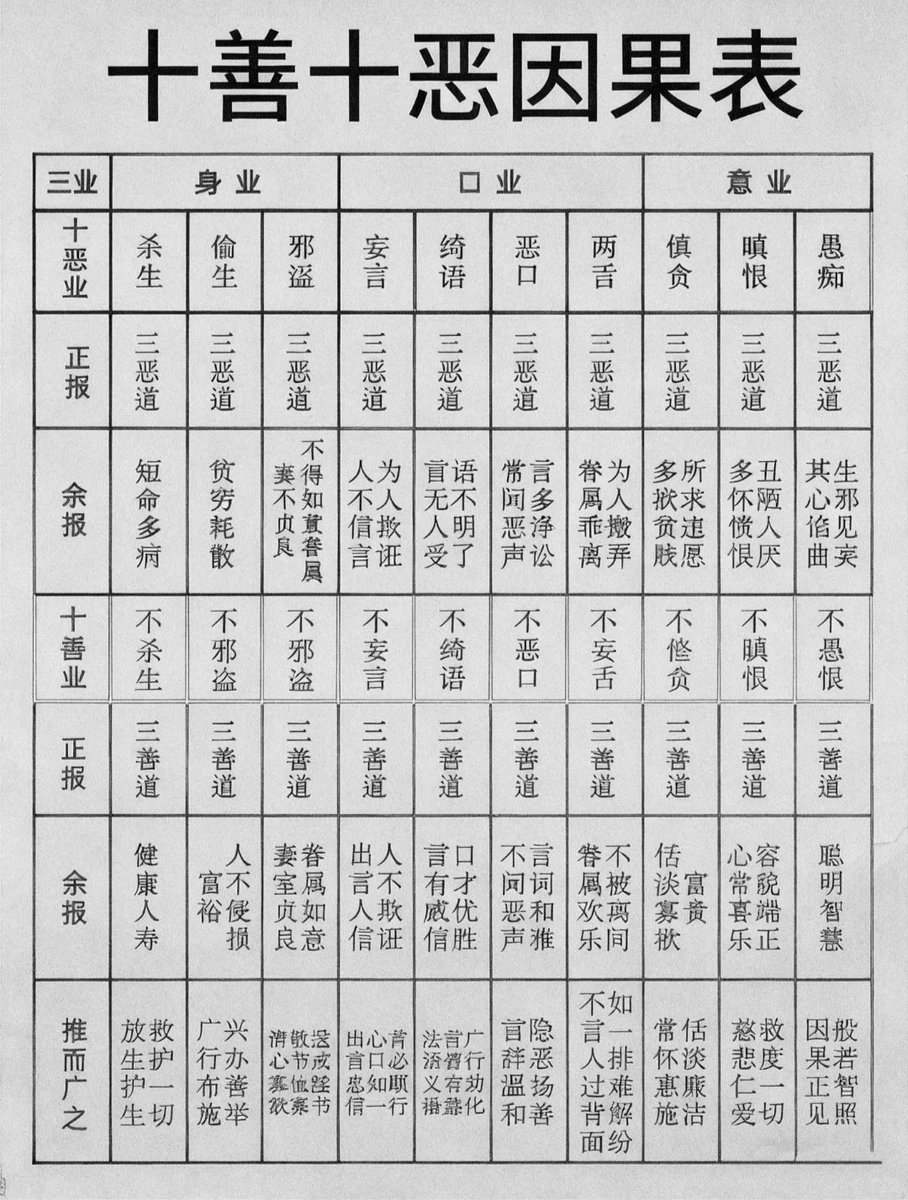 十善十恶因果表
三业 身业 口业 意业
十恶业 杀生 偷生 邪盗 妄言 绮语 恶口 两舌 慎贪 瞋恨 愚痴
正报 三恶道 三恶道 三恶道 三恶道 三恶道 三恶道 三恶道 三恶道 三恶道 三恶道
余报 短命多病 贫穷耗散 不得如眷属 妻不贞良 为人欺诳 人不信言 语不明了 言无人受 言多诤讼 常闻恶声 为人搬弄 眷属乖离 所求违愿 多欲贫 丑陋人厌 多怀愤恨 生邪见 其心谄曲
十善业 不杀生 不邪盗 不邪盗 不妄言 不绮语 不恶口 不妄舌 不贪 不瞋恨 不愚恨
正报 三善道 三善道 三善道 三善道 三善道 三善道 三善道 三善道 三善道 三善道
余报 健康人寿 人不侵损 富裕 眷属如意 妻室贞良 人不欺诳 出言人信 口才优胜 言有威信 言词和雅 不闻恶声 不被离间 眷属欢乐 富贵 恬淡寡欲 容貌端正 心常喜乐 聪明智慧
推而广之 救护一切 放生护生 兴办善举 广行布施 戒淫书 敬节 清心寡欲 言必顺行 心口如一 出言忠信 广行劝化 法语义语 隐恶扬善 言辞温和 如一排难解纷 不言人过背面 恬淡廉洁 常怀惠施 救度一切 慈悲仁爱 般若智照 因果正见